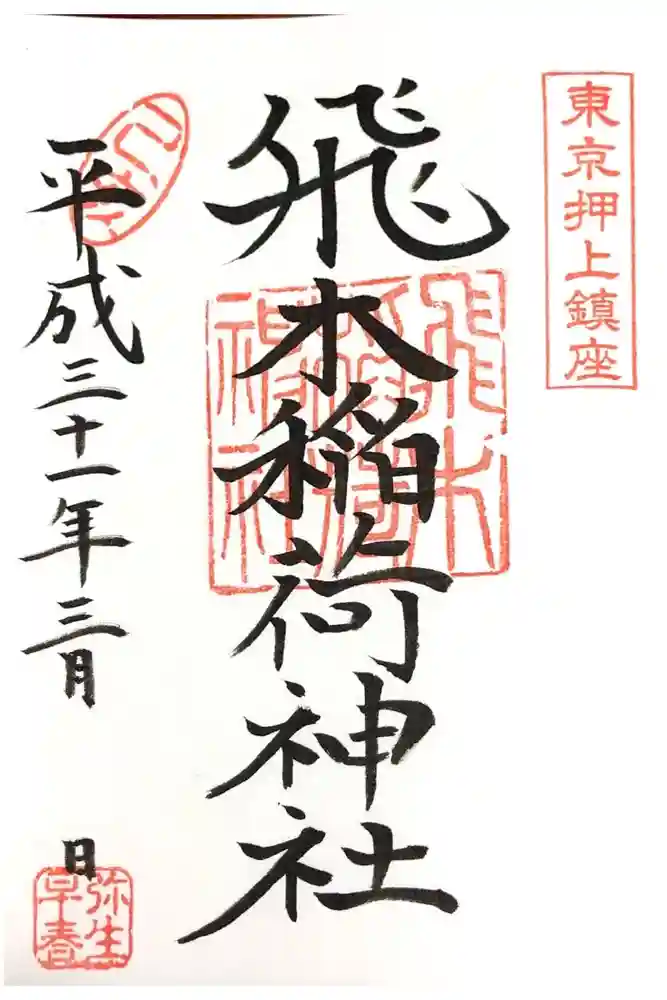 東京押上鎮座
飛木稲荷神社
飛木
稲荷
神社
平成三十一年三月 日
弥生
早春